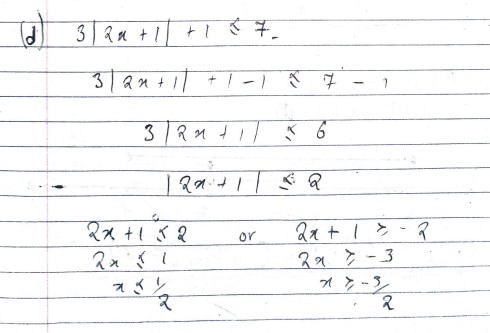 (d) 3|2x + 1| + 1 ≤ 7.
3|2x + 1| + 1 - 1 ≤ 7 - 1
3|2x + 1| ≤ 6
|2x + 1| ≤ 2
2x + 1 ≤ 2 or 2x + 1 ≥ -2
2x ≤ 1 2x ≥ -3
x ≤ 1/2 x ≥ -3/2